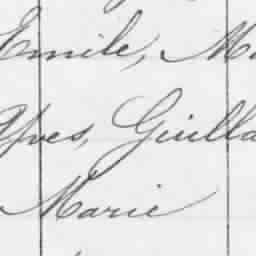 Emile, Ma
Yves, Guilla
Marie